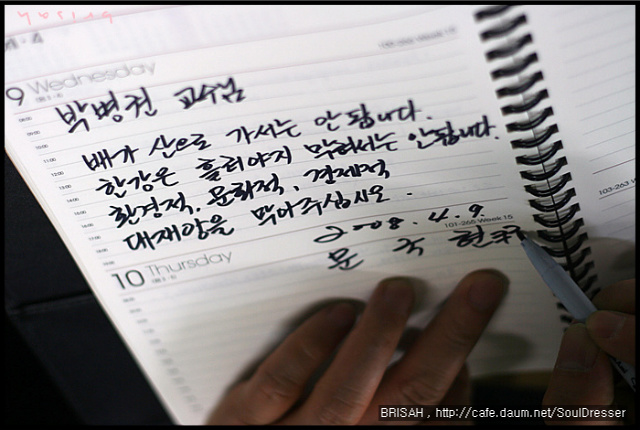 9 Wednesday
박병권 교수님
배가 산으로 가서는 안됩니다.
한강은 흘러야지 막혀서는 안됩니다.
환경적, 문화적, 경제적
대재앙을 막아주십시오.
2008. 4. 9.
101-265 Week 15
문 국 현
10 Thursday
BRISAH , http://cafe.daum.net/SoulDresser